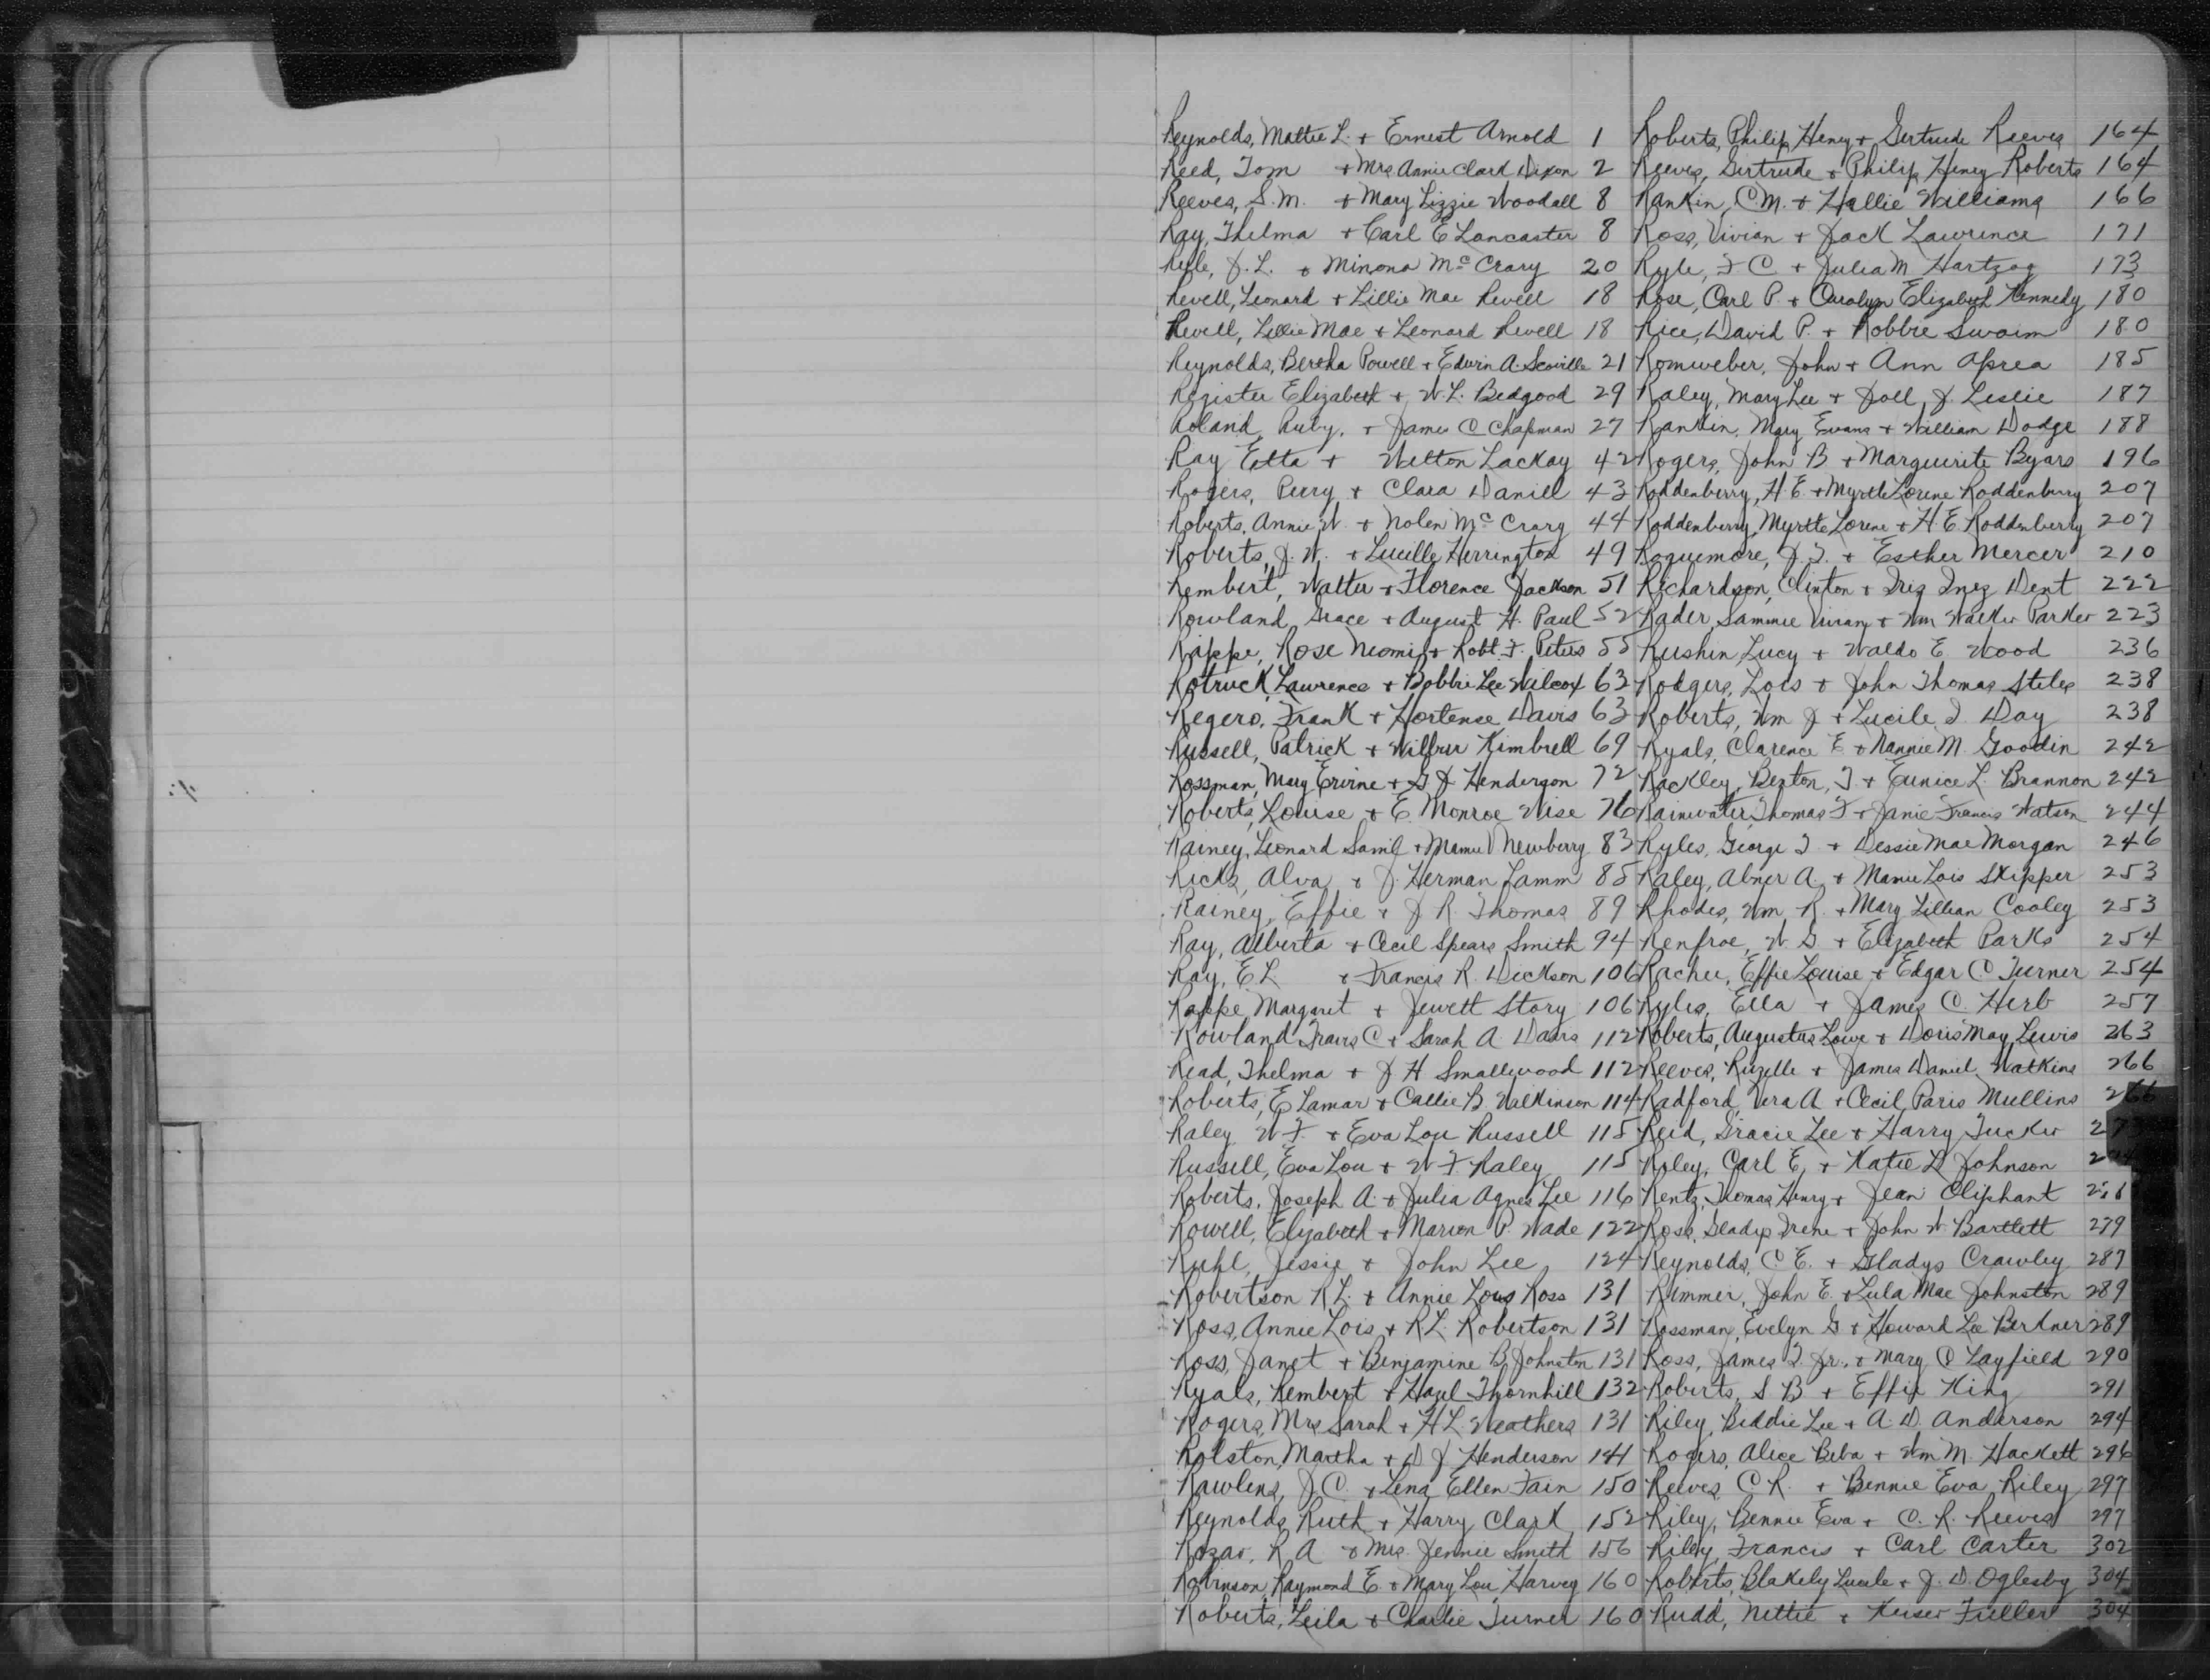 Reynolds, Mattie L. + Ernest Arnold 1
Reed, Tom + Mrs Annie Clark Dixon 2
Reeves, S.M. + Mary Lizzie Woodall 8
Ray, Thelma + Carl E Lancaster 8
Ryle, J.L. + Minona McCrary 20
Revell, Leonard + Lillie Mae Revell 18
Revell, Lillie Mae + Leonard Revell 18
Reynolds, Bertha Powell + Edwin A. Scoville 21
Register Elizabeth + W.L. Bedgood 29
Roland, Ruby, + James C Chapman 27
Ray Etta + Wilton Lackay 42
Rogers, Perry + Clara Daniell 43
Roberts, Annie W. + Nolen McCrary 44
Roberts, J.W. + Lucille Herrington 49
Rembert, Walter + Florence Jackson 51
Rowland, Grace + August H. Paul 52
Rappe, Rose Neomi + Robt. F. Peters 55
Rotruck, Lawrence + Bobbie Lee Wilcox 63
Regero, Frank + Hortense Davis 63
Russell, Patrick + Wilbur Kimbrell 69
Rossman, Mary Ervine + G J Henderson 72
Roberts, Louise + E. Monroe Wise 76
Rainey, Leonard Saml + Mamie Newberry 83
Ricks, Alva + J. Herman Lamm 85
Rainey, Effie + J R. Thomas 89
Ray, Alberta + Cecil Spears Smith 94
Ray, E L + Francis R. Dickson 106
Rappe Margaret + Jewett Story 106
Rowland Travis C + Sarah A Davis 112
Read, Thelma + J H Smallwood 112
Roberts, E Lamar + Callie B. Wilkinson 114
Raley W F. + Eva Lou Russell 115
Russell, Eva Lou + W F. Raley 115
Roberts, Joseph A. + Julia Agnes Lee 116
Rowell, Elizabeth + Marion P. Wade 122
Ruhl, Jessie + John Lee 124
Robertson R L. + Annie Lois Ross 131
Ross, Annie Lois + R L. Robertson 131
Ross, Janet + Benjamine B. Johnston 131
Ryals, Rembert + Hazel Thornhill 132
Rogers, Mrs Sarah + H L. Weathers 131
Rolston, Martha + D J Henderson 141
Rawlins, J.C. + Lena Ellen Fain 150
Reynolds Ruth + Harry Clark 152
Rozar, R A + Mrs. Jennie Smith 156
Robinson, Raymond E. + Mary Lou Harvey 160
Roberts, Leila + Charlie Turner 160
Roberts, Philip Henry + Gertrude Reeves 164
Reeves, Gertrude + Philip Henry Roberts 164
Rankin, C.M. + Hallie Williams 166
Ross, Vivian + Jack Lawrence 171
Ryle, F C + Julia M Hartzog 173
Rose, Carl P. + Carolyn Elizabeth Kennedy 180
Rice, David P. + Robbie Swaim 180
Romweber, John + Ann Aprea 185
Raley, Mary Lee + Joll J. Leslie 187
Rankin, Mary Evans + William Dodge 188
Rogers, John B + Marguerite Byars 196
Roddenberry, H.E. + Myrtle Lorene Roddenberry 207
Roddenberry, Myrtle Lorene + H E Roddenberry 207
Roquemore, J.T. + Esther Mercer 210
Richardson, Clinton + Iris Inez Dent 222
Rader, Sammie Vivian + Wm Walker Parker 223
Rushin, Lucy + Waldo E. Wood 236
Rodgers, Lois + John Thomas Stiles 238
Roberts, Wm J + Lucile I. Day 238
Ryals, Clarence E + Nannie M. Goodin 242
Rackley, Benton, T + Eunice L. Brannon 242
Rainwater, Thomas F + Janie Francis Watson 244
Ryles, George T + Dessie Mae Morgan 246
Raley, Abner A. + Mamie Lois Skipper 253
Rhodes, Wm R. + Mary Lillian Cooley 253
Renfroe, W G + Elizabeth Parks 254
Effie Louise + Edgar C Turner 254
Ryles, Ella + James C. Herb 257
Roberts, Augustus Lowe + Doris May Lewis 263
Reeves, Ruzelle + James Daniel Watkins 266
Radford, Vera A + Cecil Paris Mullins 266
Reid, Gracie Lee + Harry Tucker
Roley, Carl E. + Katie D Johnson
Rentz, Thomas Henry + Jean Oliphant
Ross, Gladys Irene + John W. Bartlett 279
Reynolds, C E. + Gladys Crawley 287
Rimmer, John E. + Lula Mae Johnston 289
Rossman, Evelyn G + Howard Lee Berkner 289
Ross, James T. Jr. + Mary C Layfield 290
Roberts, S B + Effie King 291
Riley, Biddie Lee + A. D. Anderson 294
Rogers, Alice Beba + Wm M. Hackett 296
Reeves C R. + Bennie Eva Riley 297
Riley, Bennie Eva + C. R. Reeves 297
Riley Francis + Carl Carter 302
Roberts, Blakely Lucile + J. D. Oglesby 304
Rudd, Nettie + Keiser Fuller 304